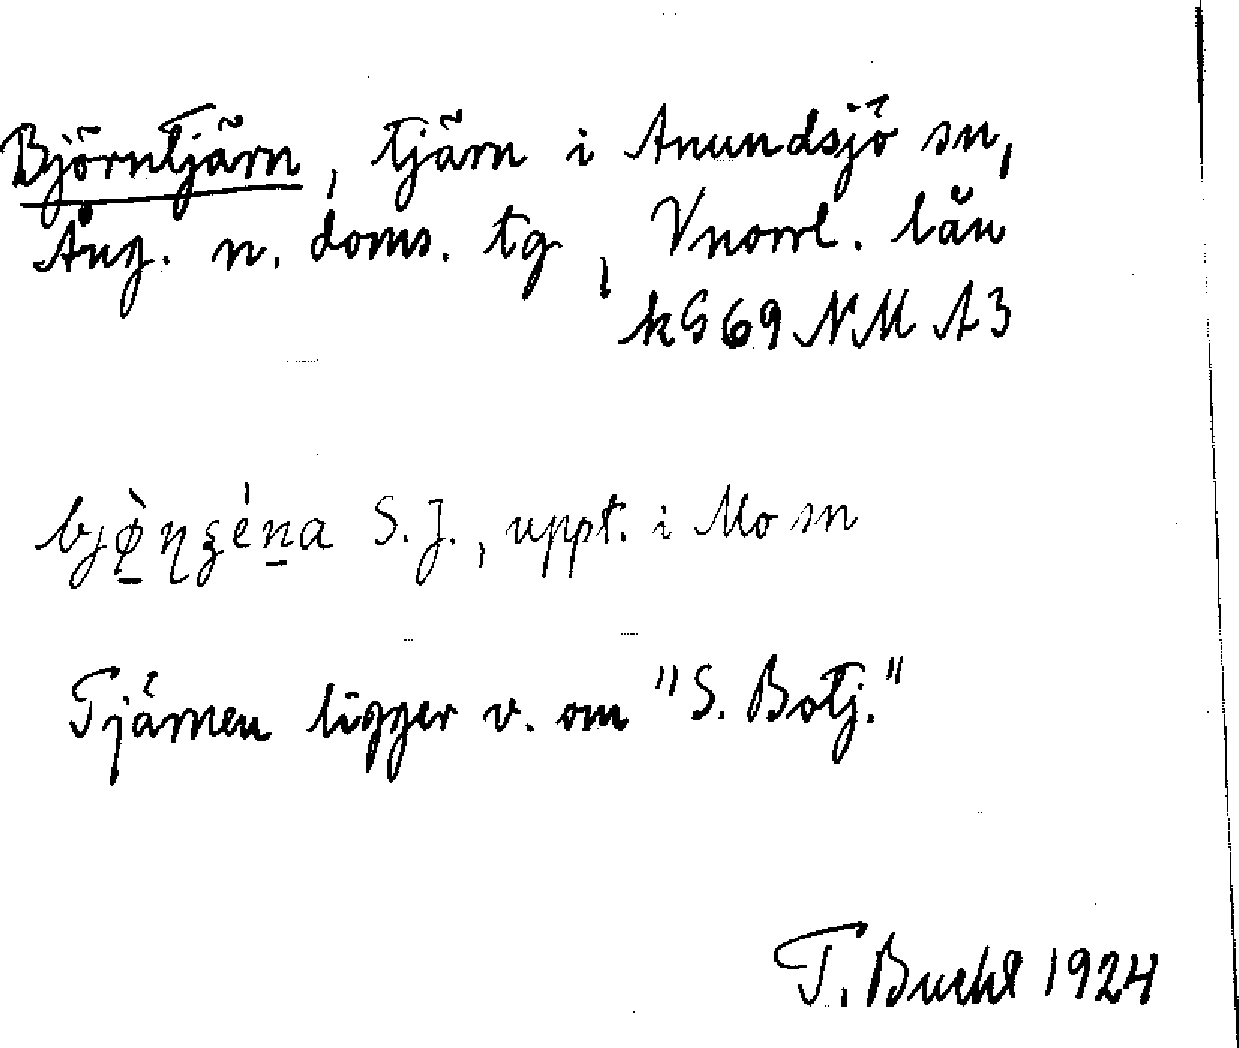 Björntjärn, tjärn i Anundsjö sn,
Ång. n. doms. tg, Vnorrl. län
kS 69 NM A3
S. J., uppt. i Mo sn
Tjärnen ligger v. om "S. Botj."
T. Bucht 1924